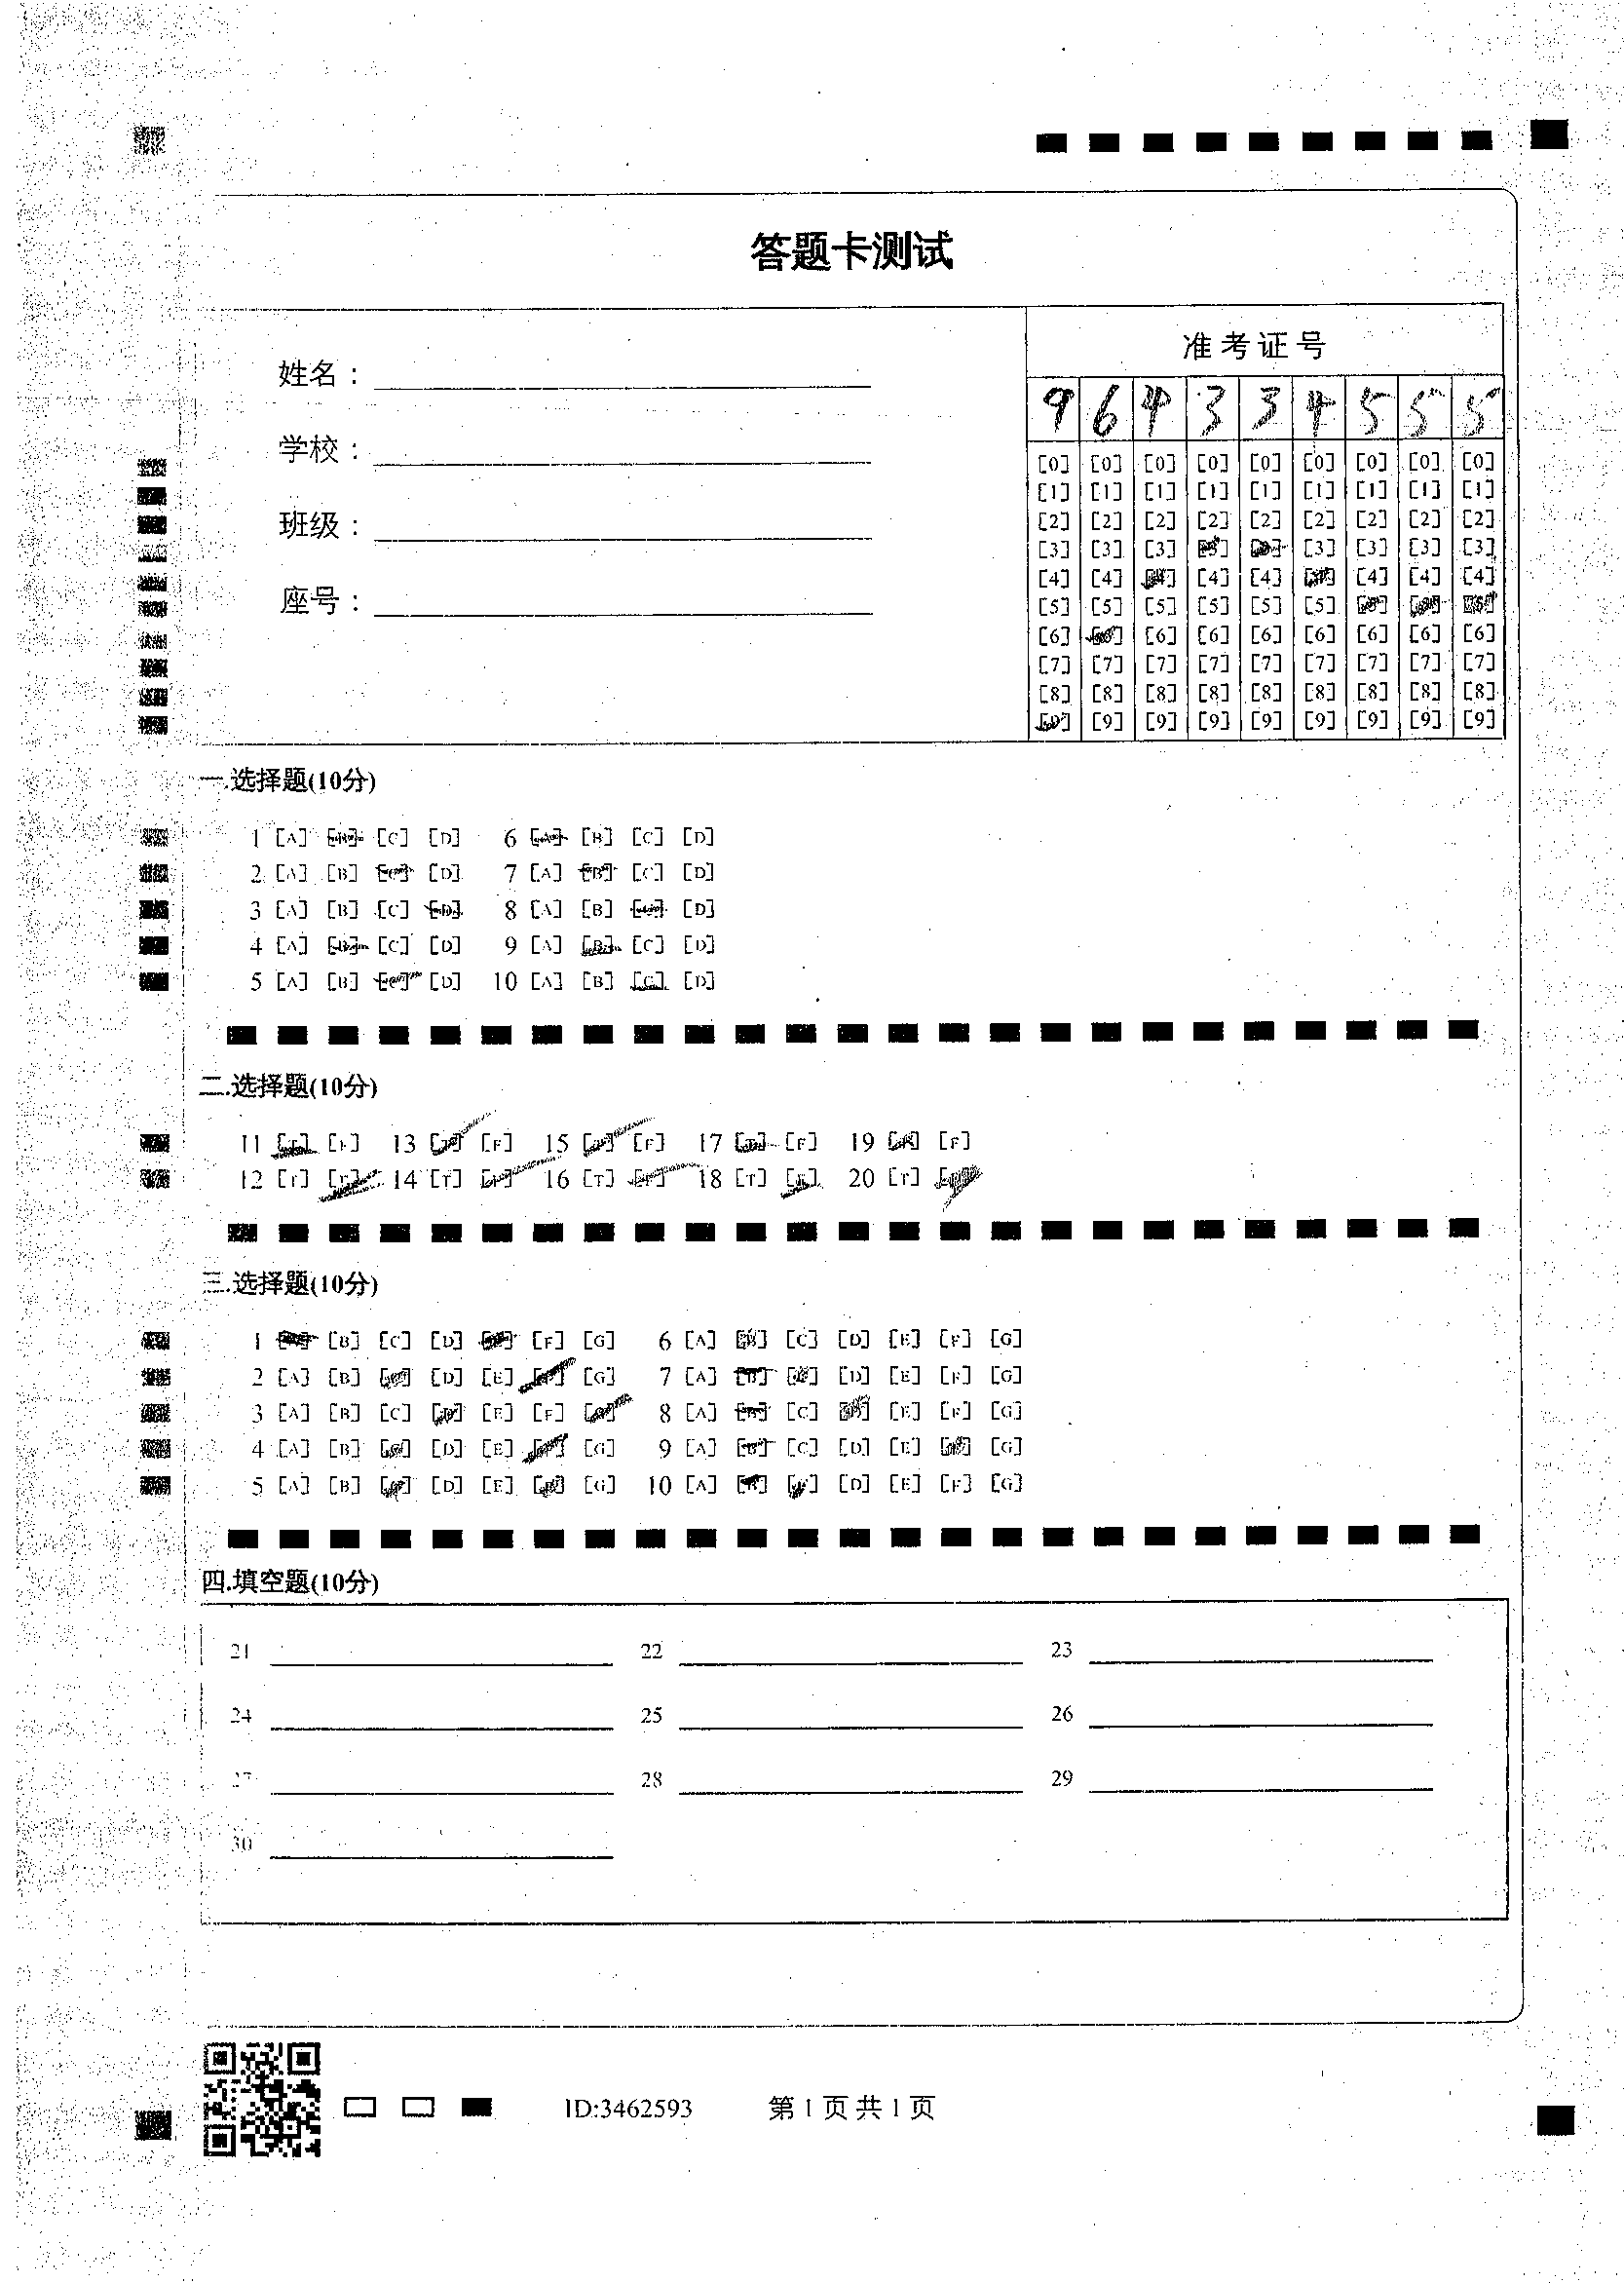 答题卡测试
准考证号
姓名：
学校：
班级：
座号：
9 6 4 3 3 4 5 5 5
[0] [0] [0] [0] [0] [0] [0] [0] [0]
[1] [1] [1] [1] [1] [1] [1] [1] [1]
[2] [2] [2] [2] [2] [2] [2] [2] [2]
[3] [3] [3] [3] [3] [3] [3] [3] [3]
[4] [4] [4] [4] [4] [4] [4] [4] [4]
[5] [5] [5] [5] [5] [5] [5] [5] [5]
[6] [6] [6] [6] [6] [6] [6] [6] [6]
[7] [7] [7] [7] [7] [7] [7] [7] [7]
[8] [8] [8] [8] [8] [8] [8] [8] [8]
[9] [9] [9] [9] [9] [9] [9] [9] [9]
一.选择题(10分)
1 [A] [B] [C] [D] 6 [A] [B] [C] [D]
2 [A] [B] [C] [D] 7 [A] [B] [C] [D]
3 [A] [B] [C] [D] 8 [A] [B] [C] [D]
4 [A] [B] [C] [D] 9 [A] [B] [C] [D]
5 [A] [B] [C] [D] 10 [A] [B] [C] [D]
二.选择题(10分)
11 [T] [F] 13 [T] [F] 15 [T] [F] 17 [T] [F] 19 [T] [F]
12 [T] [F] 14 [T] [F] 16 [T] [F] 18 [T] [F] 20 [T] [F]
三.选择题(10分)
1 [A] [B] [C] [D] [E] [F] [G] 6 [A] [B] [C] [D] [E] [F] [G]
2 [A] [B] [C] [D] [E] [F] [G] 7 [A] [B] [C] [D] [E] [F] [G]
3 [A] [B] [C] [D] [E] [F] [G] 8 [A] [B] [C] [D] [E] [F] [G]
4 [A] [B] [C] [D] [E] [F] [G] 9 [A] [B] [C] [D] [E] [F] [G]
5 [A] [B] [C] [D] [E] [F] [G] 10 [A] [B] [C] [D] [E] [F] [G]
四.填空题(10分)
21 22 23
24 25 26
27 28 29
30
ID:3462593 第1页共1页